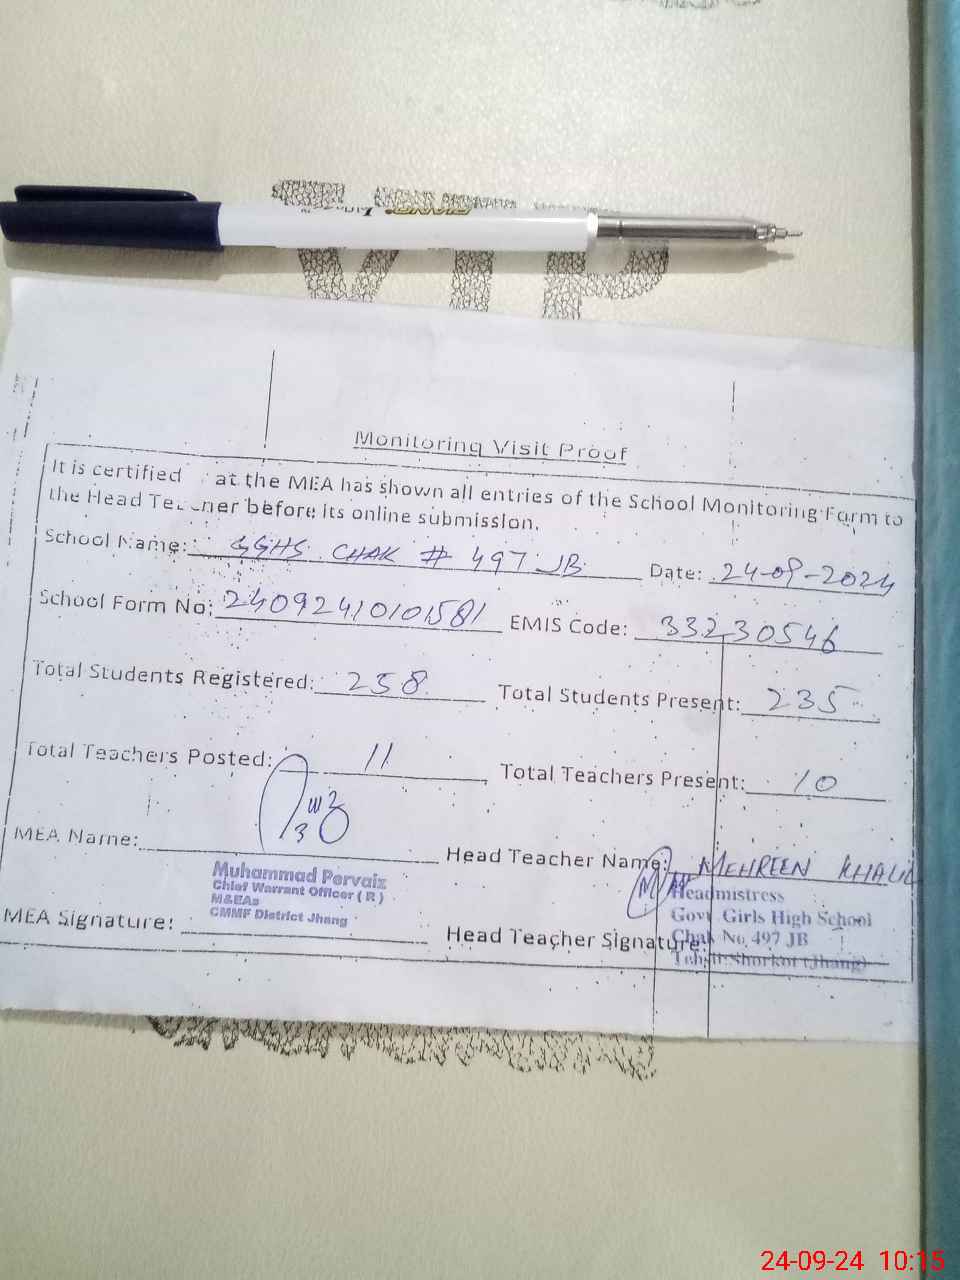 PIANO
VIP
Monitoring Visit Proof
It is certified at the MEA has shown all entries of the School Monitoring Form to
the Head Teacher before its online submission.
School Name: GGHS CHAK # 497 JB Date: 24-09-2024
School Form No: 24092410101581 EMIS Code: 33230546
Total Students Registered: 258 Total Students Present: 235
Total Teachers Posted: 11 Total Teachers Present: 10
MEA Name: Head Teacher Name: MEHREEN KHALIL
Muhammad Pervaiz
Chief Warrant Officer ( R )
M&EAs
CMMF District Jhang
MEA Signature:
Head Teacher Signature:
Headmistress
Govt Girls High School
Chak No. 497 JB
Teh: Shorkot (Jhang)
24-09-24 10:15